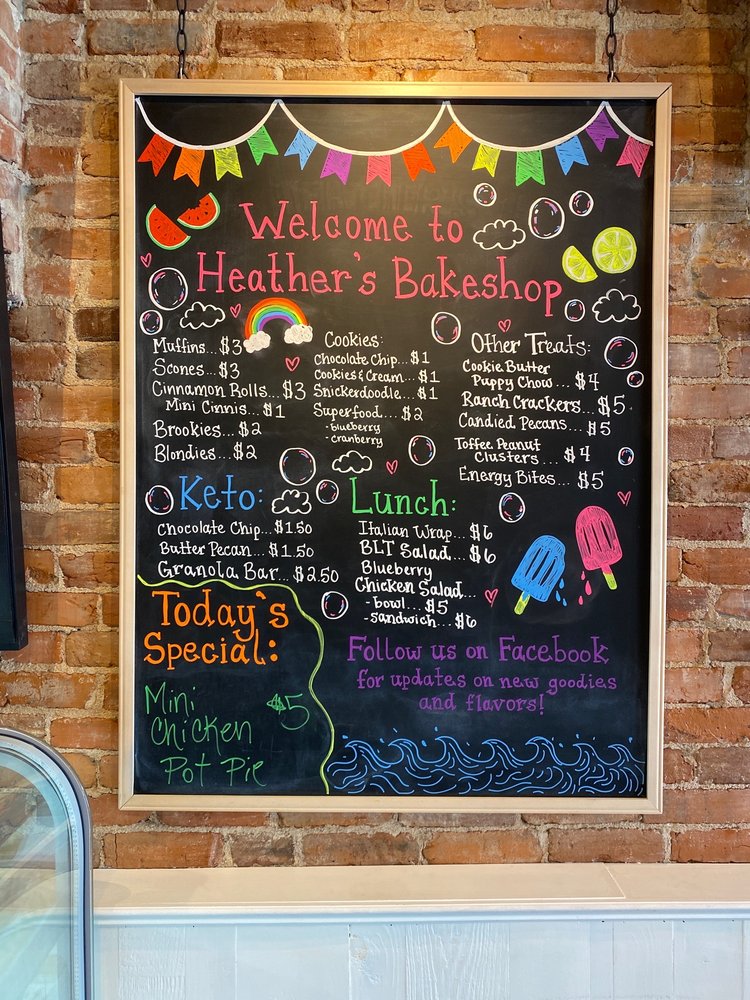 Welcome to
Heather's Bakeshop
Muffins... $3
Scones... $3
Cinnamon Rolls... $3
Mini Cinnis... $1
Brookies... $2
Blondies... $2
Cookies:
Chocolate Chip... $1
Cookies & Cream... $1
Snickerdoodle... $1
Superfood... $2
- blueberry
- cranberry
Other Treats:
Cookie Butter
Puppy Chow ... $4
Ranch Crackers... $5
Candied Pecans... $5
Toffee Peanut
Clusters.... $4
Energy Bites... $5
Keto:
Chocolate Chip... $1.50
Butter Pecan... $1.50
Granola Bar... $2.50
Lunch:
Italian Wrap... $6
BLT Salad... $6
Blueberry
Chicken Salad...
- bowl... $5
- sandwich... $6
Today's
Special:
Mini $5
Chicken
Pot Pie
Follow us on Facebook
for updates on new goodies
and flavors!